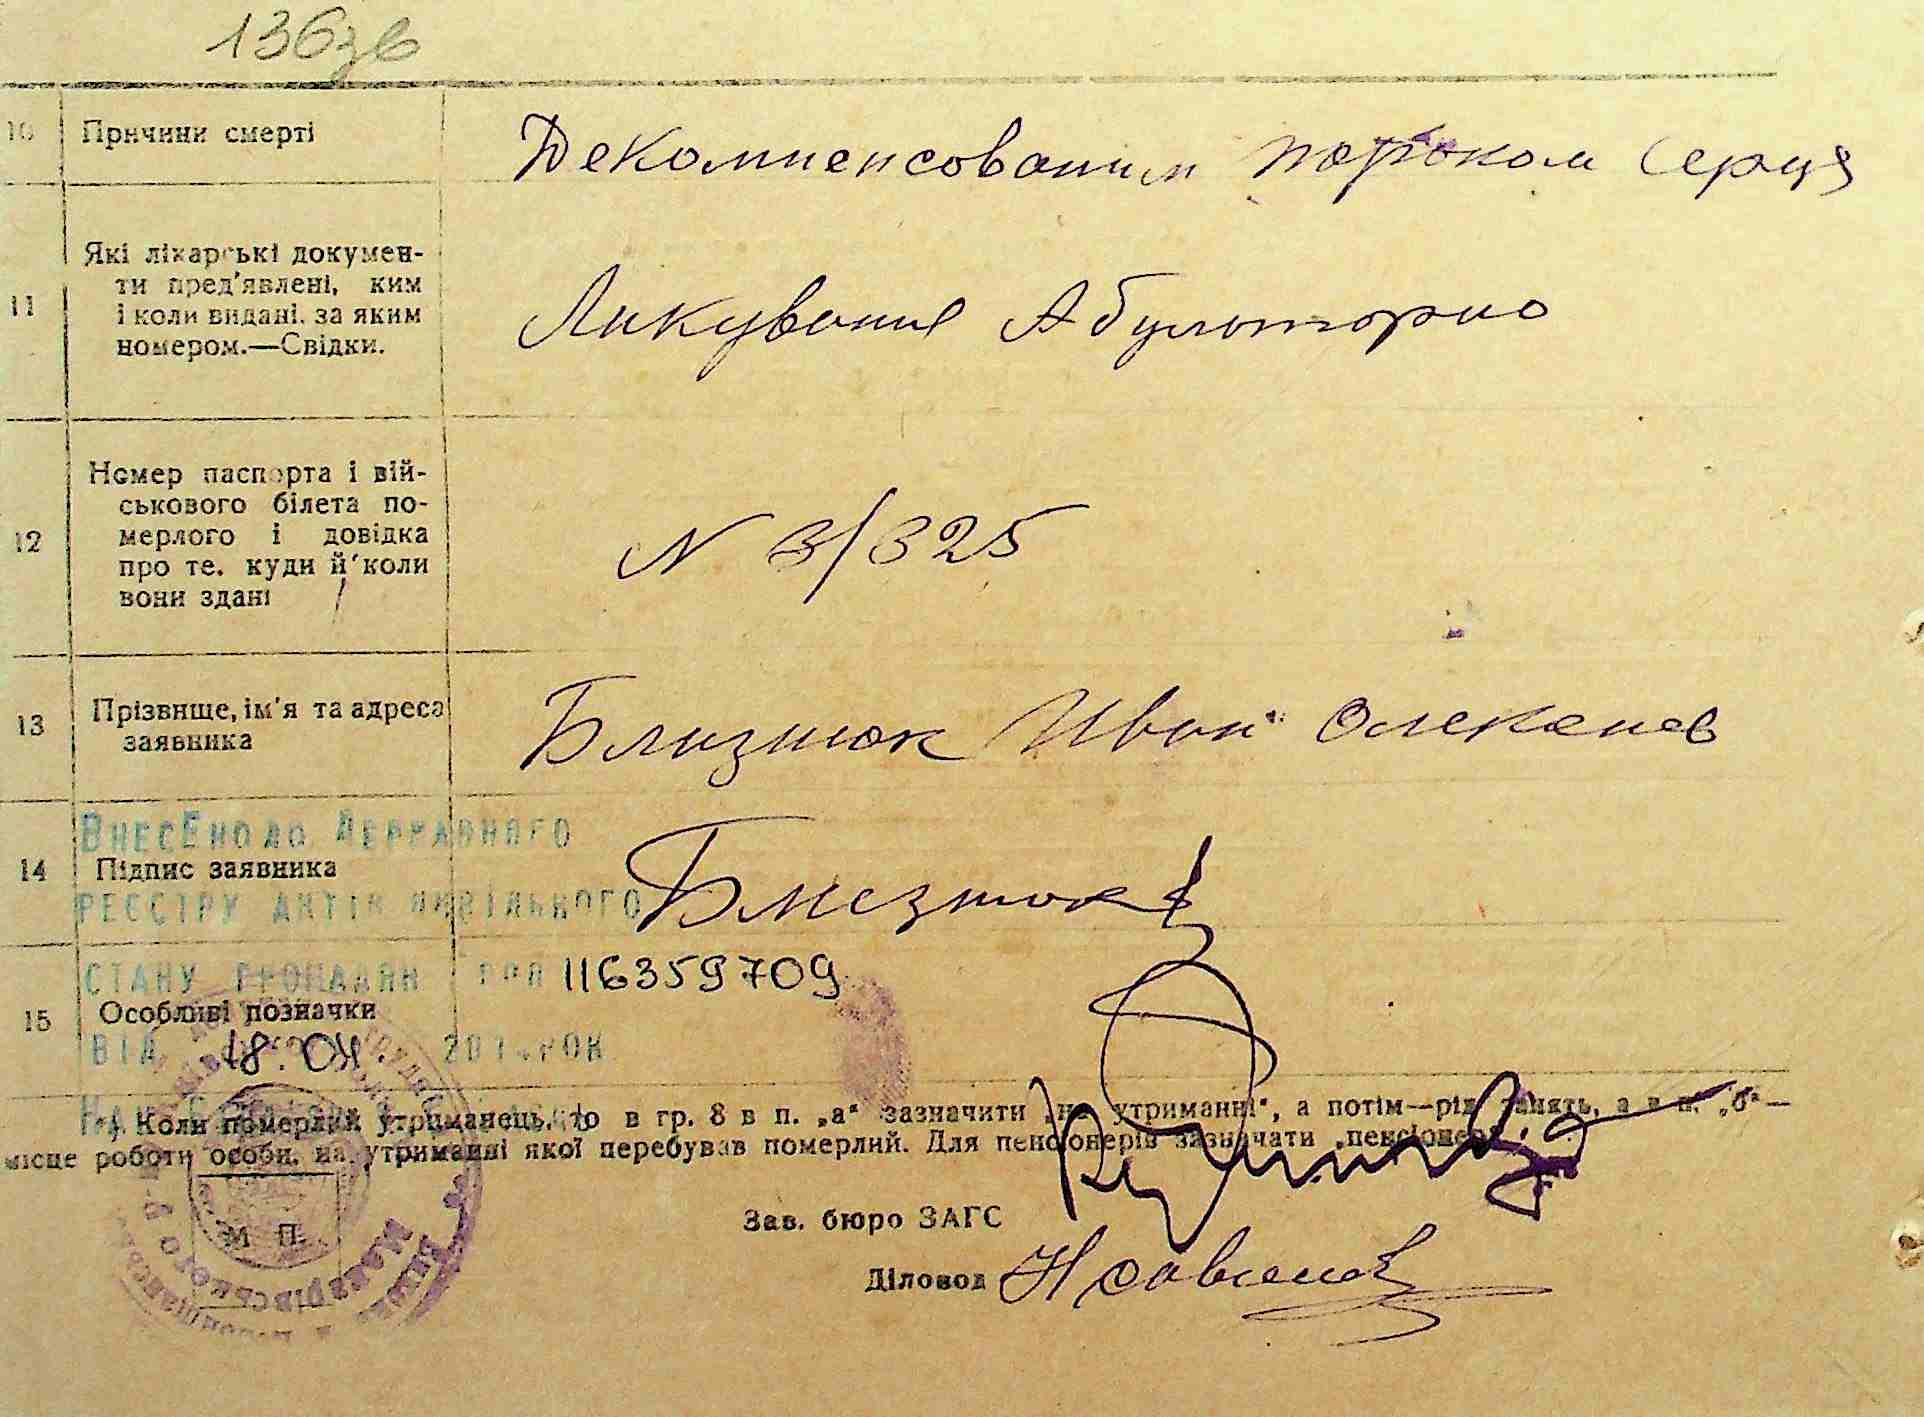 136зв
10 Причини смерті
Декомпенсованим пороком серця
11 Які лікарські докумен-
ти пред'явлені, ким
і коли видані, за яким
номером.—Свідки.
Ликування Абулаторно
12 Номер паспорта і вій-
ськового білета по-
мерлого і довідка
про те, куди й коли
вони здані
N 3/325
13 Прізвище, ім'я та адреса
заявника
Близнюк Иван
ВНЕСЕНО ДО ДЕРЖАВНОГО
14 Підпис заявника
Близнюк
РЕЄСТРУ АКТІВ ЦИВІЛЬНОГО
СТАНУ ГРОМАДЯН 116359709
15 Особливі позначки
ВІД 18.04. РОК
*) Коли померлий утриманець, то в гр. 8 в п. „а“ зазначити „на утриманні“, а потім—рід занять, а в п. „б“—
місце роботи особи, на утриманні якої перебував померлий. Для пенсіонерів зазначати „пенсіонер“.
Зав. бюро ЗАГС
М П.
Діловод
Макарівського